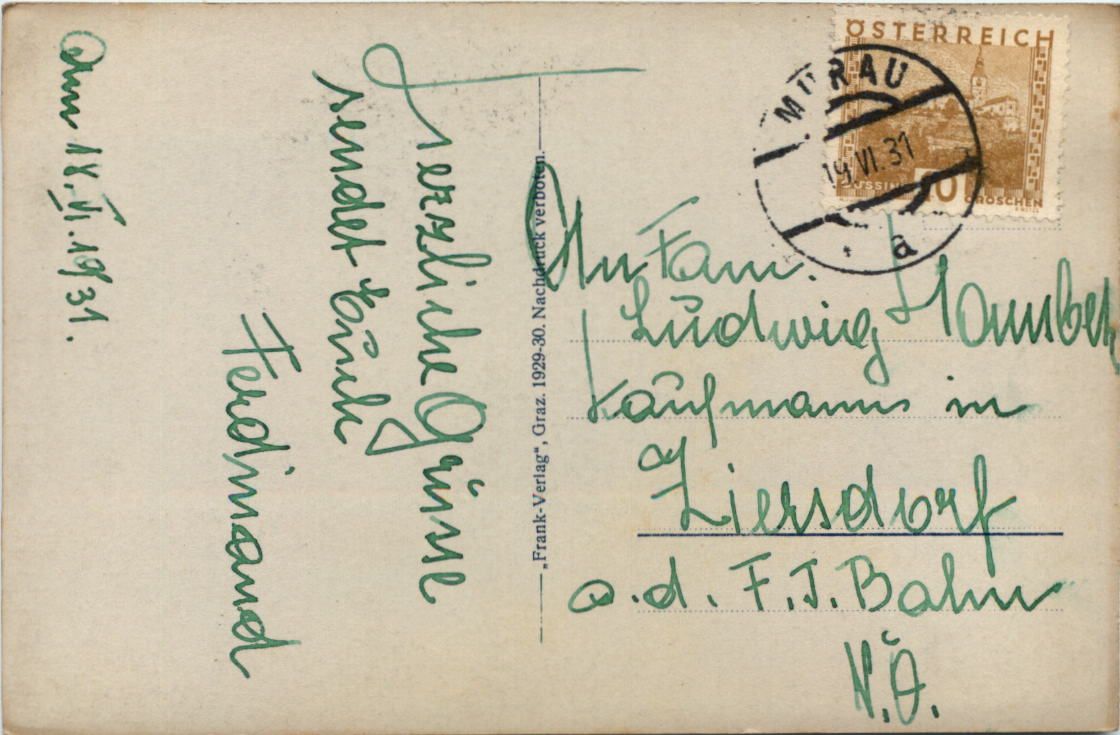 Am 18.VI.1931.
Herzliche Grüsse
sendet Euch
Ferdinand
„Frank-Verlag", Graz. 1929-30. Nachdruck verboten.
ÖSTERREICH
GÜSSING 10 GROSCHEN
MURAU
19 VI. 31
a
An Fam.
Ludwig
Kaufmann in
Ziersdorf
a.d. F.J. Bahn
N.Ö.